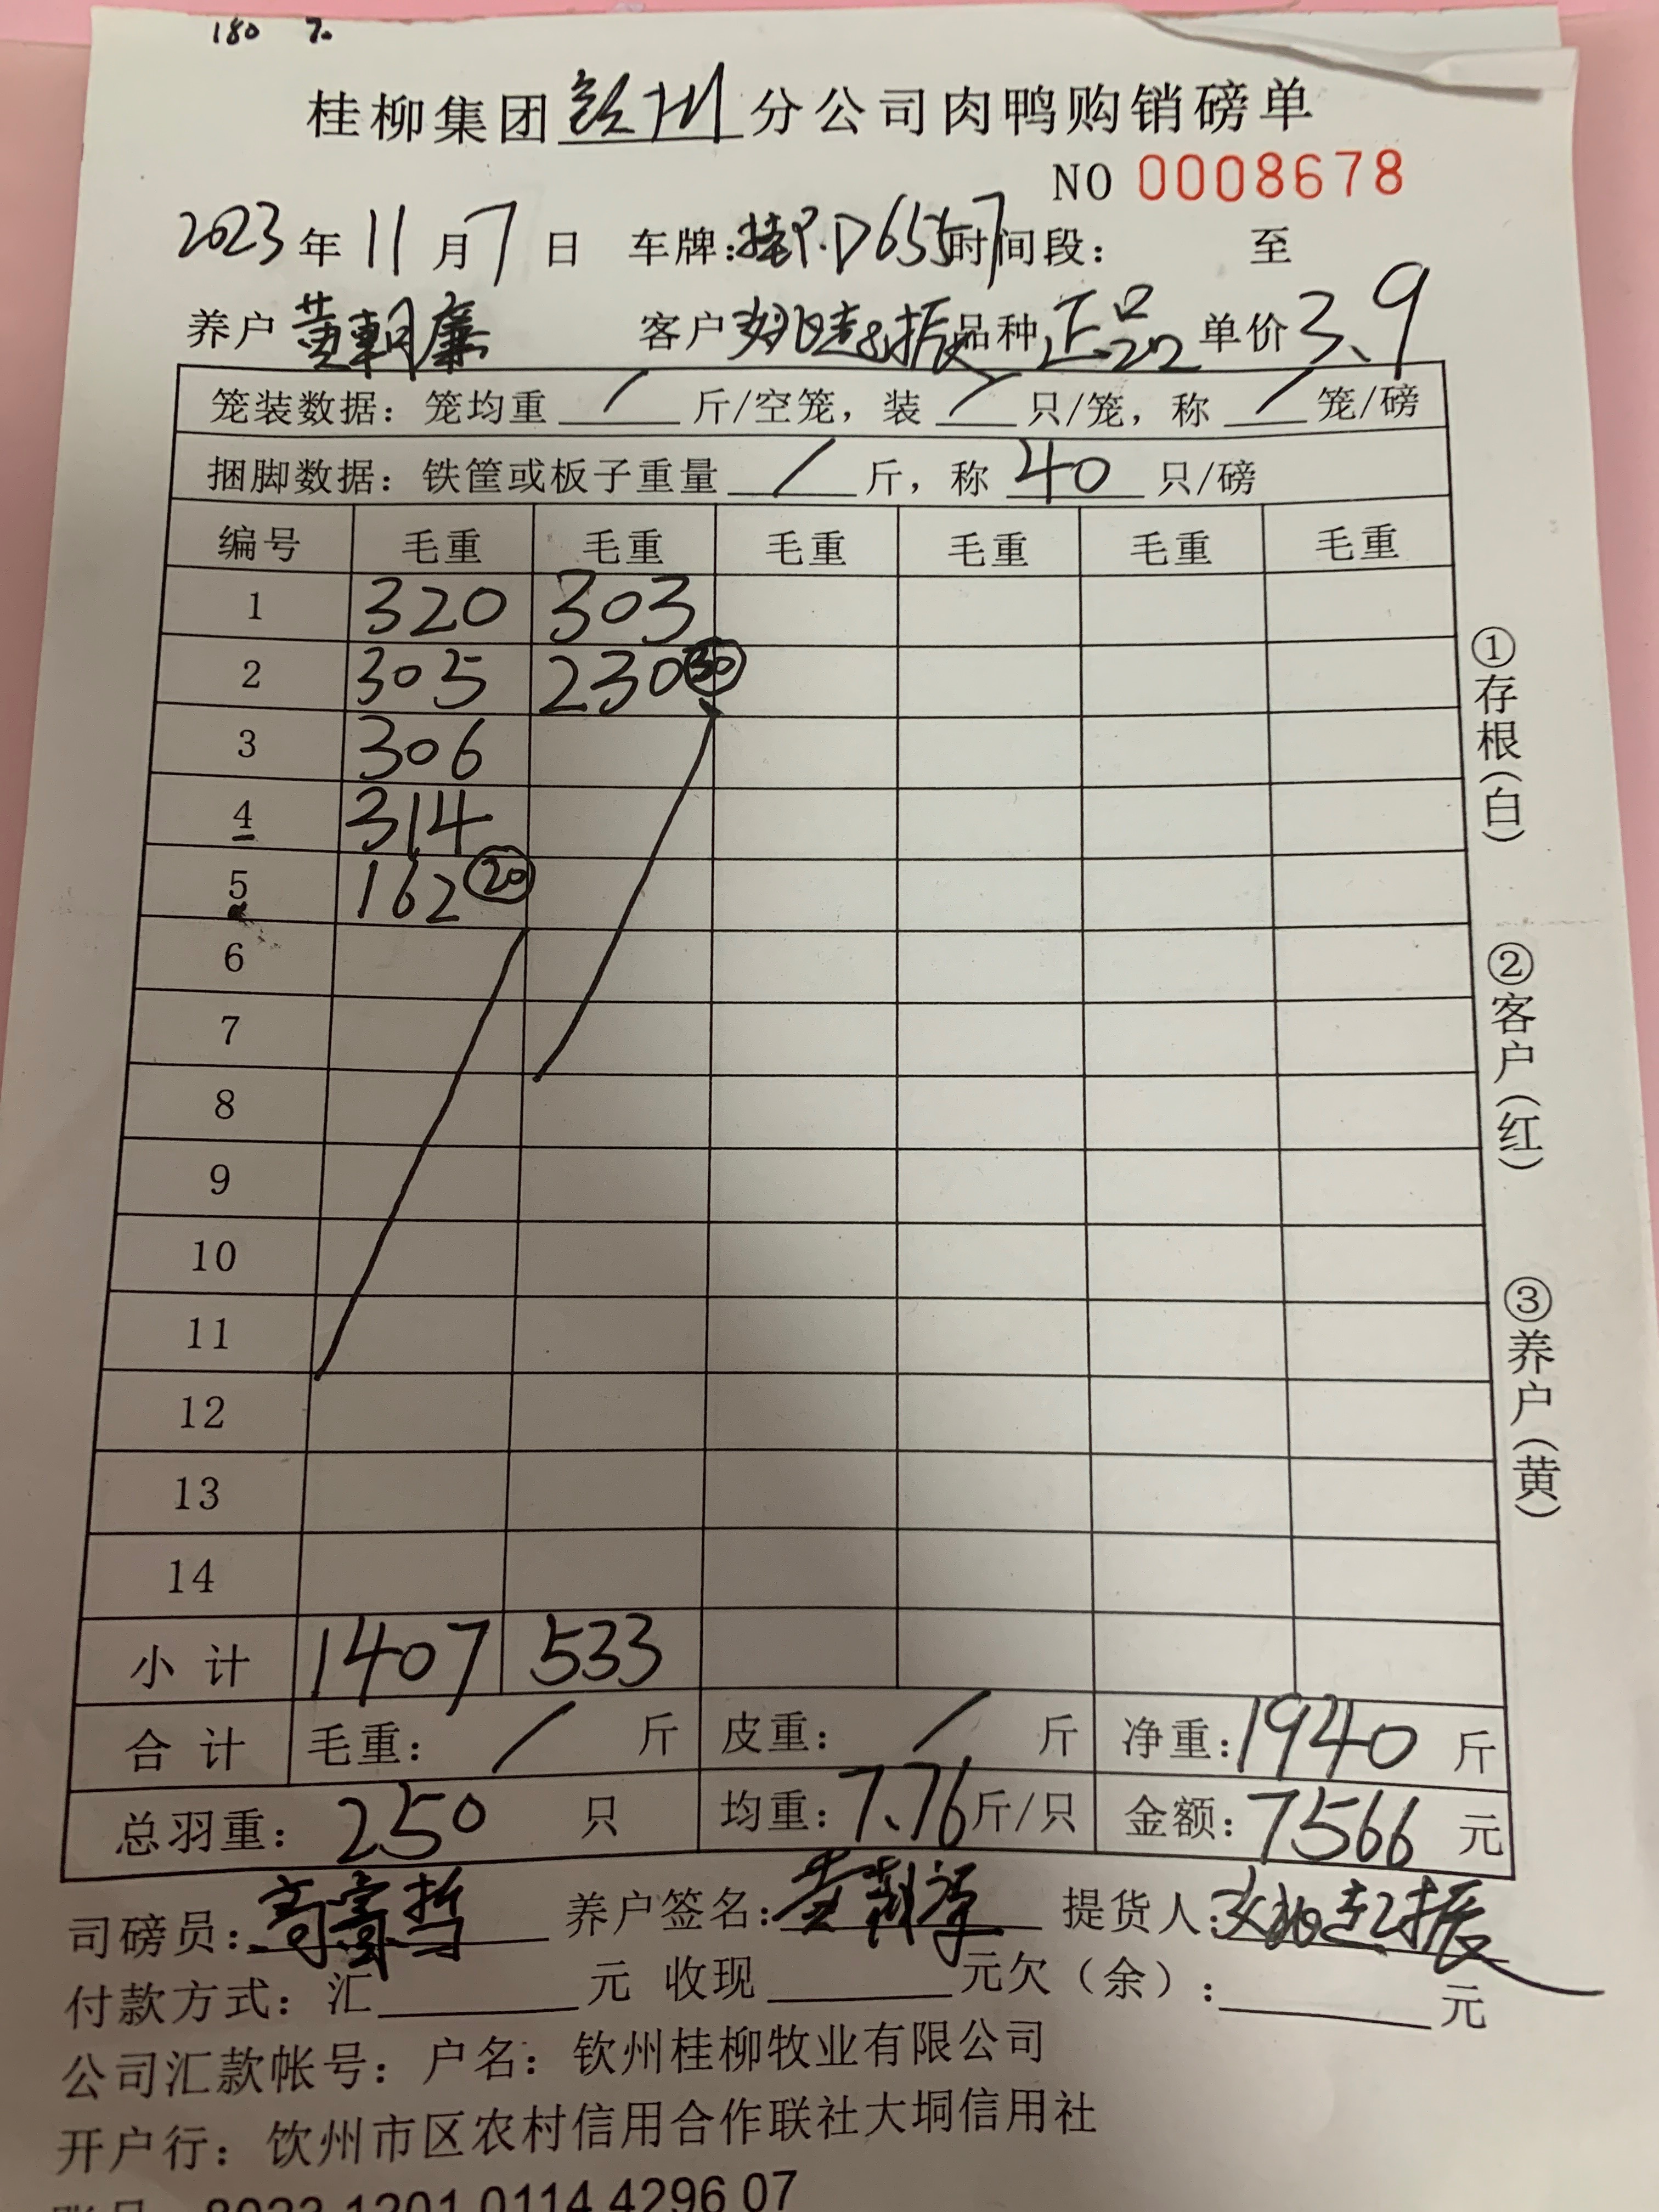 180 7.
桂柳集团钦州分公司肉鸭购销磅单
NO 0008678
2023年11月7日 车牌:桂P.D6557时间段: 至
养户 黄朝廉 客户 品种 正品 单价 3.9
笼装数据: 笼均重 / 斤/空笼, 装 / 只/笼, 称 / 笼/磅
捆脚数据: 铁筐或板子重量 / 斤, 称 40 只/磅
编号 毛重 毛重 毛重 毛重 毛重 毛重
1 320 303
2 305 230 30
3 306
4 314
5 162 20
6
7
8
9
10
11
12
13
14
小计 1407 533
合计 毛重: / 斤 皮重: / 斤 净重:1940 斤
总羽重: 250 只 均重:7.76斤/只 金额:7566 元
司磅员: 养户签名: 提货人:
付款方式: 汇 元 收现 元欠(余): 元
公司汇款帐号: 户名: 钦州桂柳牧业有限公司
开户行: 钦州市区农村信用合作联社大垌信用社
账号 8023 1201 0114 4296 07
①存根(白)
②客户(红)
③养户(黄)